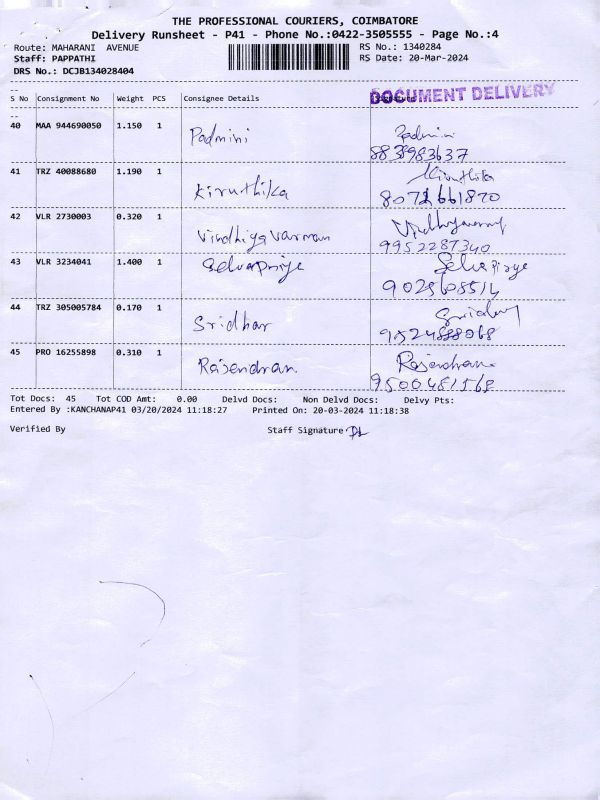 THE PROFESSIONAL COURIERS, COIMBATORE
Delivery Runsheet - P41 - Phone No.:0422-3505555 - Page No.:4
Route: MAHARANI AVENUE RS No.: 1340284
Staff: PAPPATHI RS Date: 20-Mar-2024
DRS No.: DCJB134028404
DOCUMENT DELIVERY
S No Consignment No Weight PCS Consignee Details
40 MAA 944690050 1.150 1 Padmini Padmini
41 TRZ 40088680 1.190 1 Kiruthika Kiruthika
8072661820
42 VLR 2730003 0.320 1 Vindhiya varman
9952287340
43 VLR 3234041 1.400 1 Selvapriya Selvapriya
44 TRZ 305005784 0.170 1 Sridhar Sridhar
45 PRO 16255898 0.310 1 Rajendran Rajendran
Tot Docs: 45 Tot COD Amt: 0.00 Delvd Docs: Non Delvd Docs: Delvy Pts:
Entered By :KANCHANAP41 03/20/2024 11:18:27 Printed On: 20-03-2024 11:18:38
Verified By Staff Signature